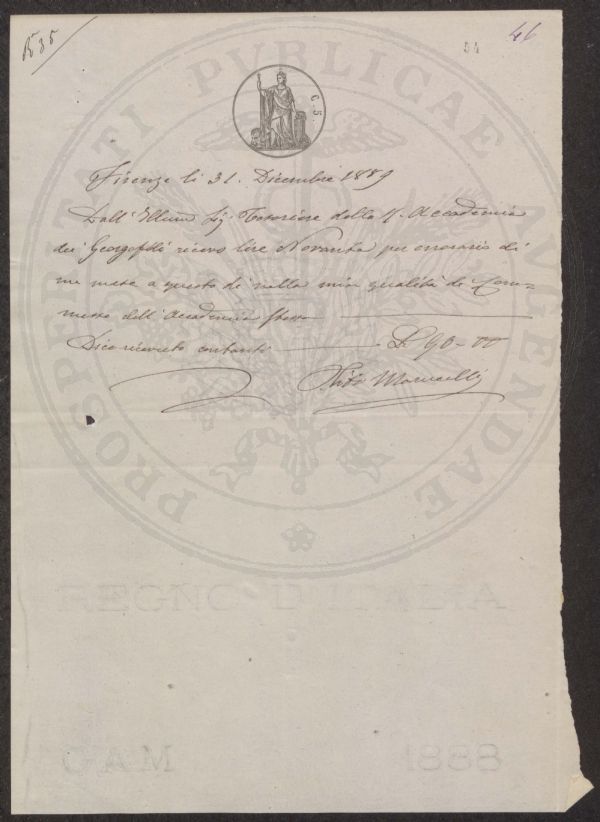 R° 35
54
46
C. 5.
PROSPERITATI PUBLICAE AUGENDAE
Firenze li 31. Dicembre 1889
Dall' Illmo Sig. Tesoriere della R. Accademia
dei Georgofili ricevo lire Novanta per onorario di
un mese a questo dì nella mia qualità di Com-
messo dell' Accademia stessa
Dico ricevuto contanti L. 90-00
Vito Marucelli
REGNO D'ITALIA
CAM 1888